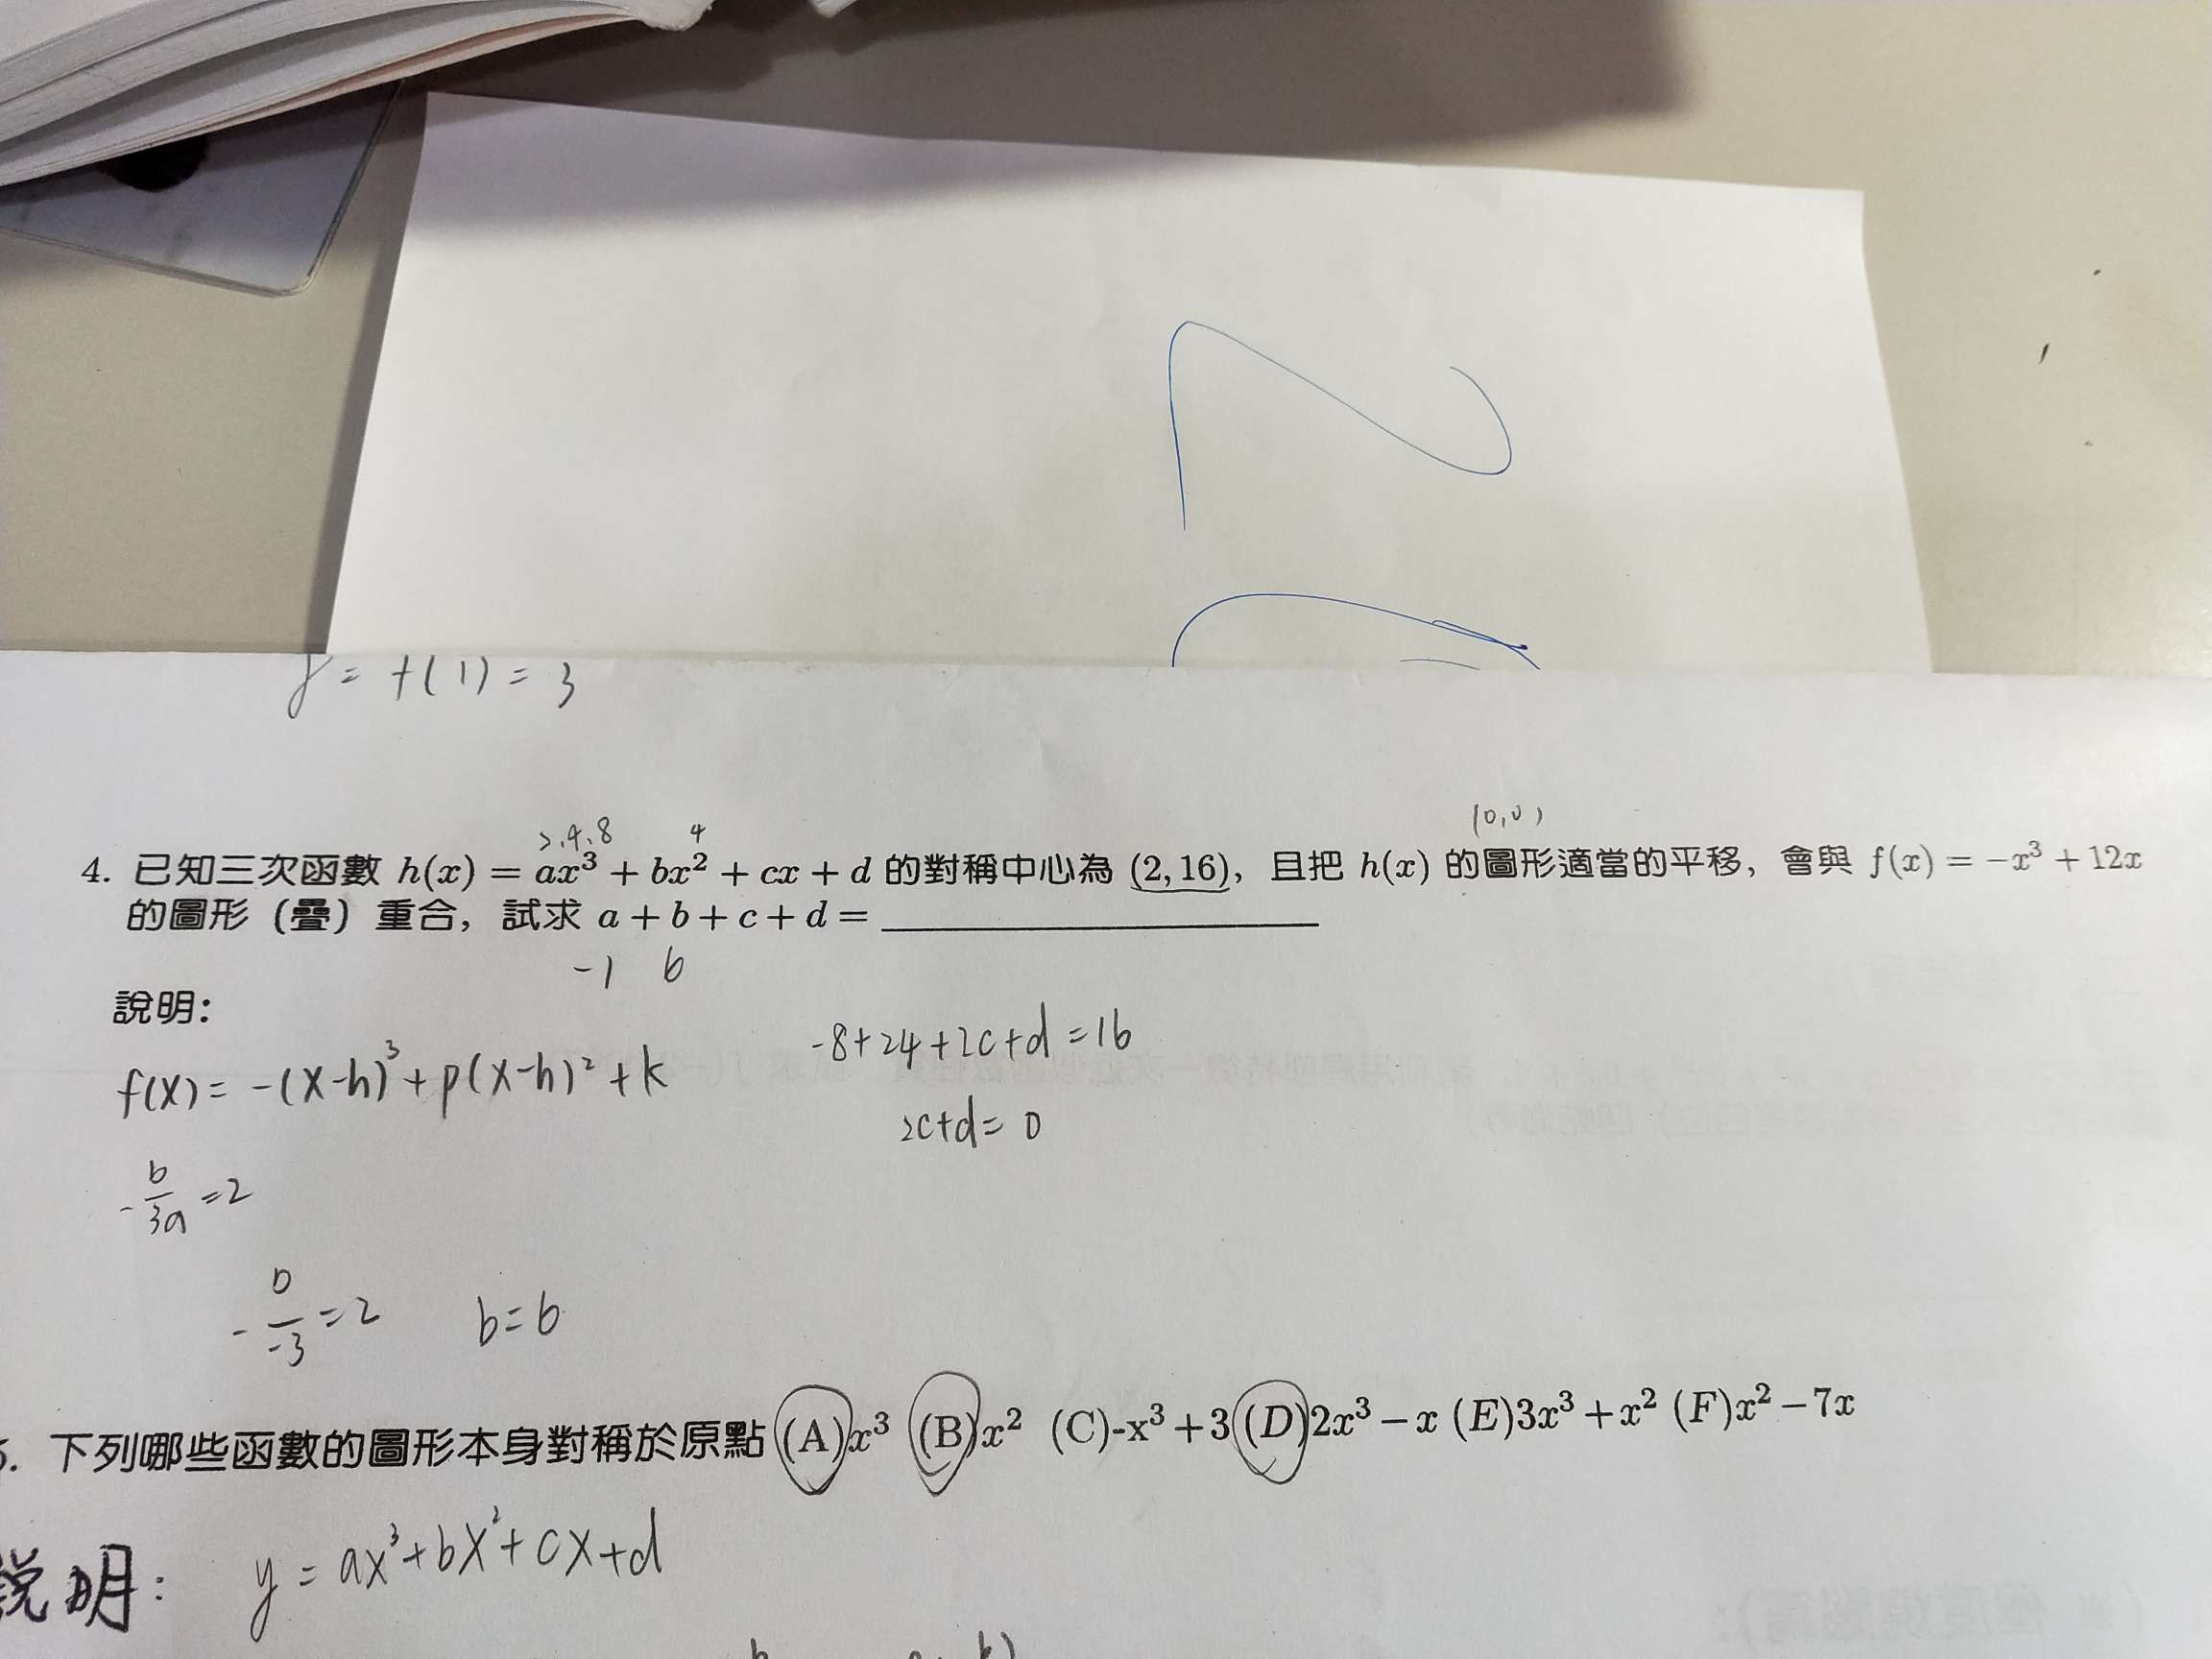 y = f(1) = 3
(0,0)
2.4.8 4
4. 已知三次函數 h(x) = ax³ + bx² + cx + d 的對稱中心為 (2, 16), 且把 h(x) 的圖形適當的平移, 會與 f(x) = −x³ + 12x
的圖形 (疊) 重合, 試求 a + b + c + d =
-1 6
說明:
f(x) = -(x-h)³ + p(x-h)² + k
-8+24+2c+d=16
2c+d=0
-b/3a=2
-b/-3=2 b=6
5. 下列哪些函數的圖形本身對稱於原點 (A)x³ (B)x² (C)-x³ + 3 (D)2x³ − x (E)3x³ + x² (F)x² − 7x
說明: y = ax³+bx²+cx+d